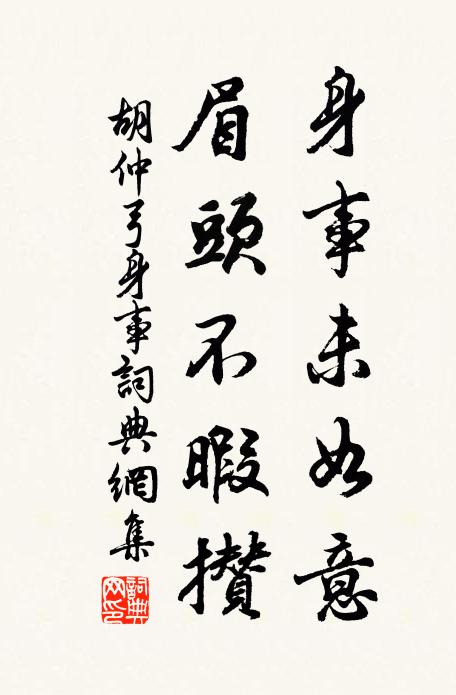 身事未如意
眉頭不暇攢
胡仲弓身事詞典網集
詞典网印